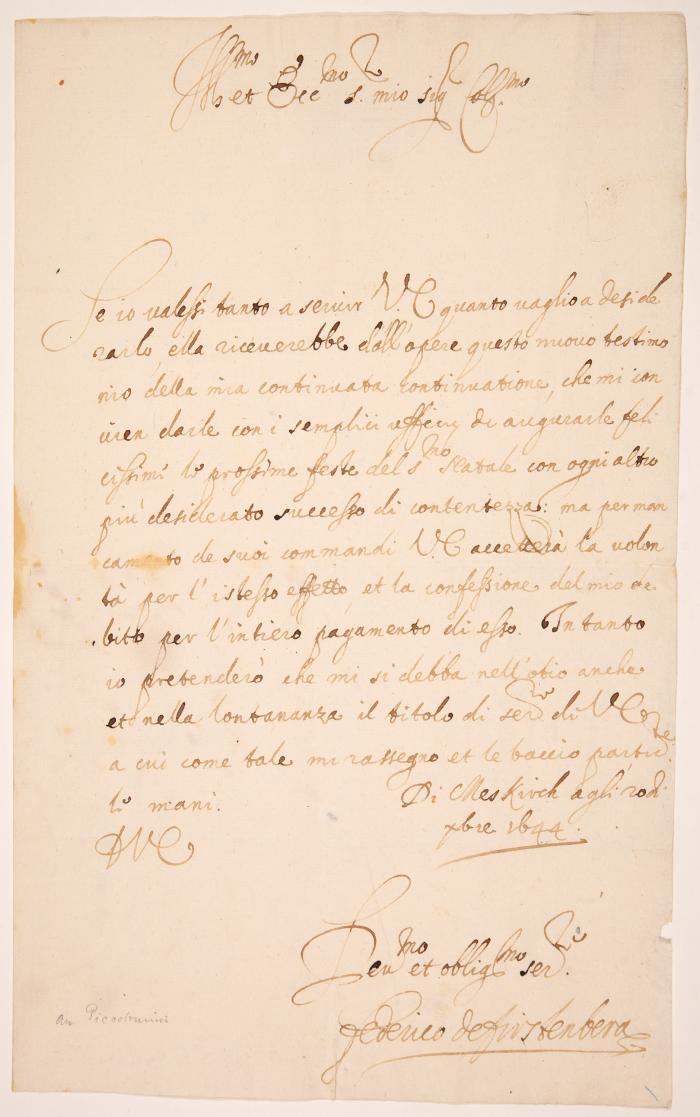 Ill.mo et Ecc.mo s.r mio sig.r Coll.mo
Se io valessi tanto a servir V.E. quanto vaglio a deside
rarlo, ella riceverebbe dall'opere questo nuovo testimo
nio della mia continuata continuatione, che mi con
vien darle con i semplici ufficij di augurarle feli
cissimi le prossime feste del s.mo Natale con ogni altro
più desiderato successo di contentezza: ma per man
camento de suoi commandi V.E. accetterà la volon
tà per l'istesso effetto, et la confessione del mio de
bito per l'intiero pagamento di esso. In tanto
io pretenderò che mi si debba nell'otio anche
et nella lontananza il titolo di ser.re di V.E.
a cui come tale mi rassegno et le baccio partic.te
le mani. Di Meskirch agli 20 di
xbre 1644.
D V E
Dev.mo et oblig.mo ser.re
Federico de Firstenberg
An Piccolomini